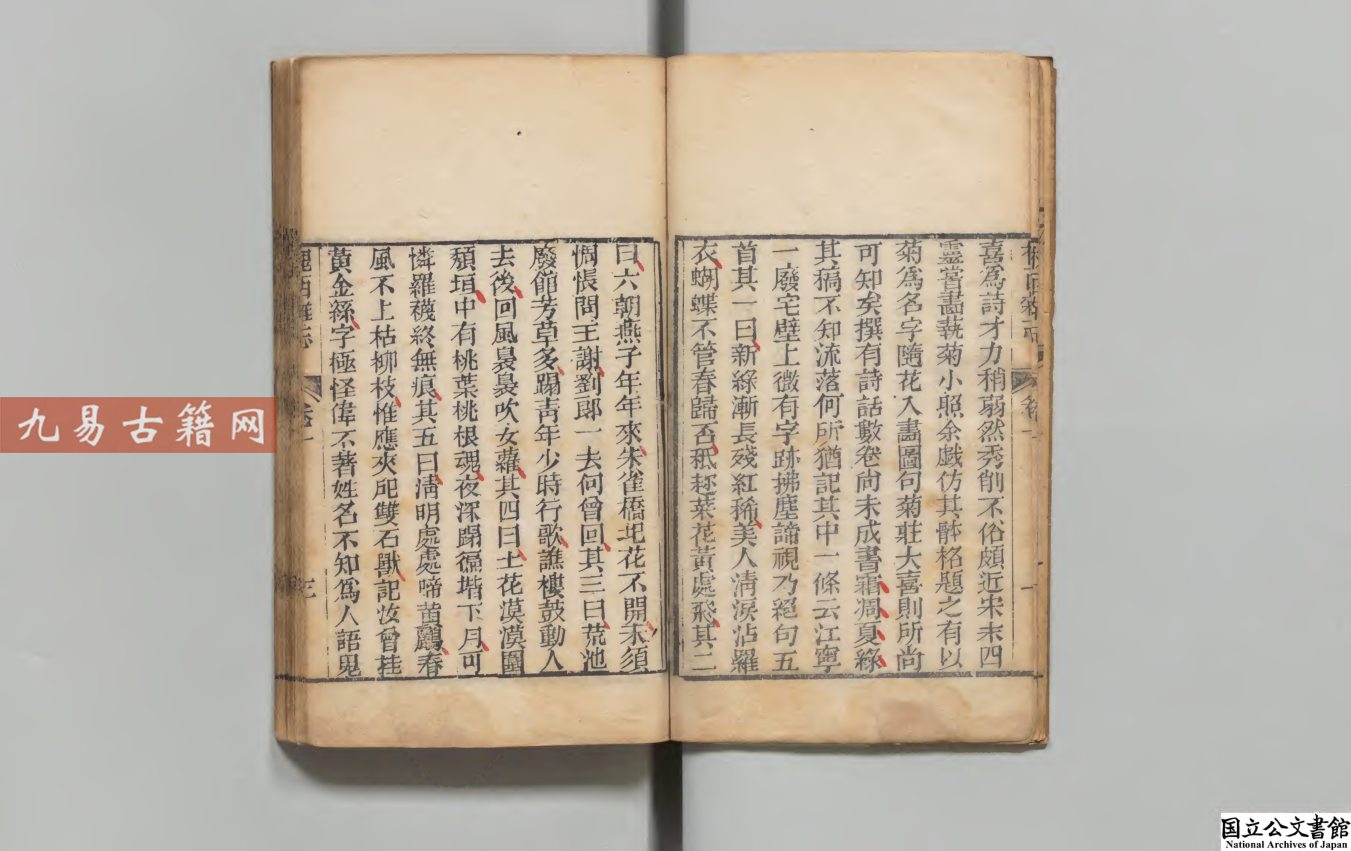 喜為詩才力稍弱然秀削不俗頗近宋末四
靈嘗畫蓺菊小照余戲仿其骵格題之有以
菊為名字隨花入畫圖句菊莊大喜則所尚
可知矣撰有詩話數卷尚未成書霜凋夏綠
其稿不知流落何所猶記其中一條云江寧
一廢宅壁上微有字跡拂塵諦視乃絕句五
首其一曰新綠漸長殘紅稀美人清淚沾羅
衣蝴蝶不管春歸否秪趂菜花黃處飛其二
曰六朝燕子年年來朱雀橋圮花不開未須
惆悵問王謝劉郎一去何曾回其三曰荒池
廢館芳草多踏青年少時行歌譙樓鼓動人
去後回風裊裊吹女蘿其四曰土花漠漠圍
頹垣中有桃葉桃根魂夜深踏徧堦下月可
憐羅襪終無痕其五曰清明處處啼黃鸝春
風不上枯柳枝惟應夾雙石獸記汝曾挂
黃金絲字極怪偉不著姓名不知為人語鬼
槐西雜志 卷一 三
九易古籍网
国立公文書館
National Archives of Japan